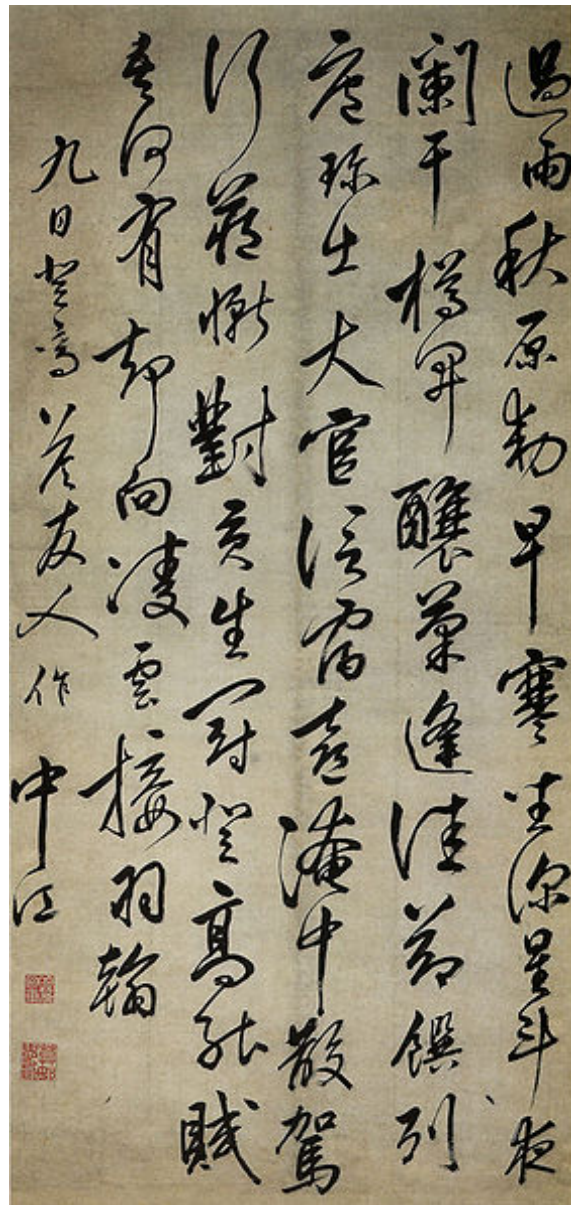 過雨秋原動早寒坐深星斗夜
闌干樽開釀菊逢佳節饌列
庖珍出大官信宿喜淹中散駕
行藏慚對貢生冠登高能賦
吾何有却向凌雲接羽翰
九日登高答友人作中江